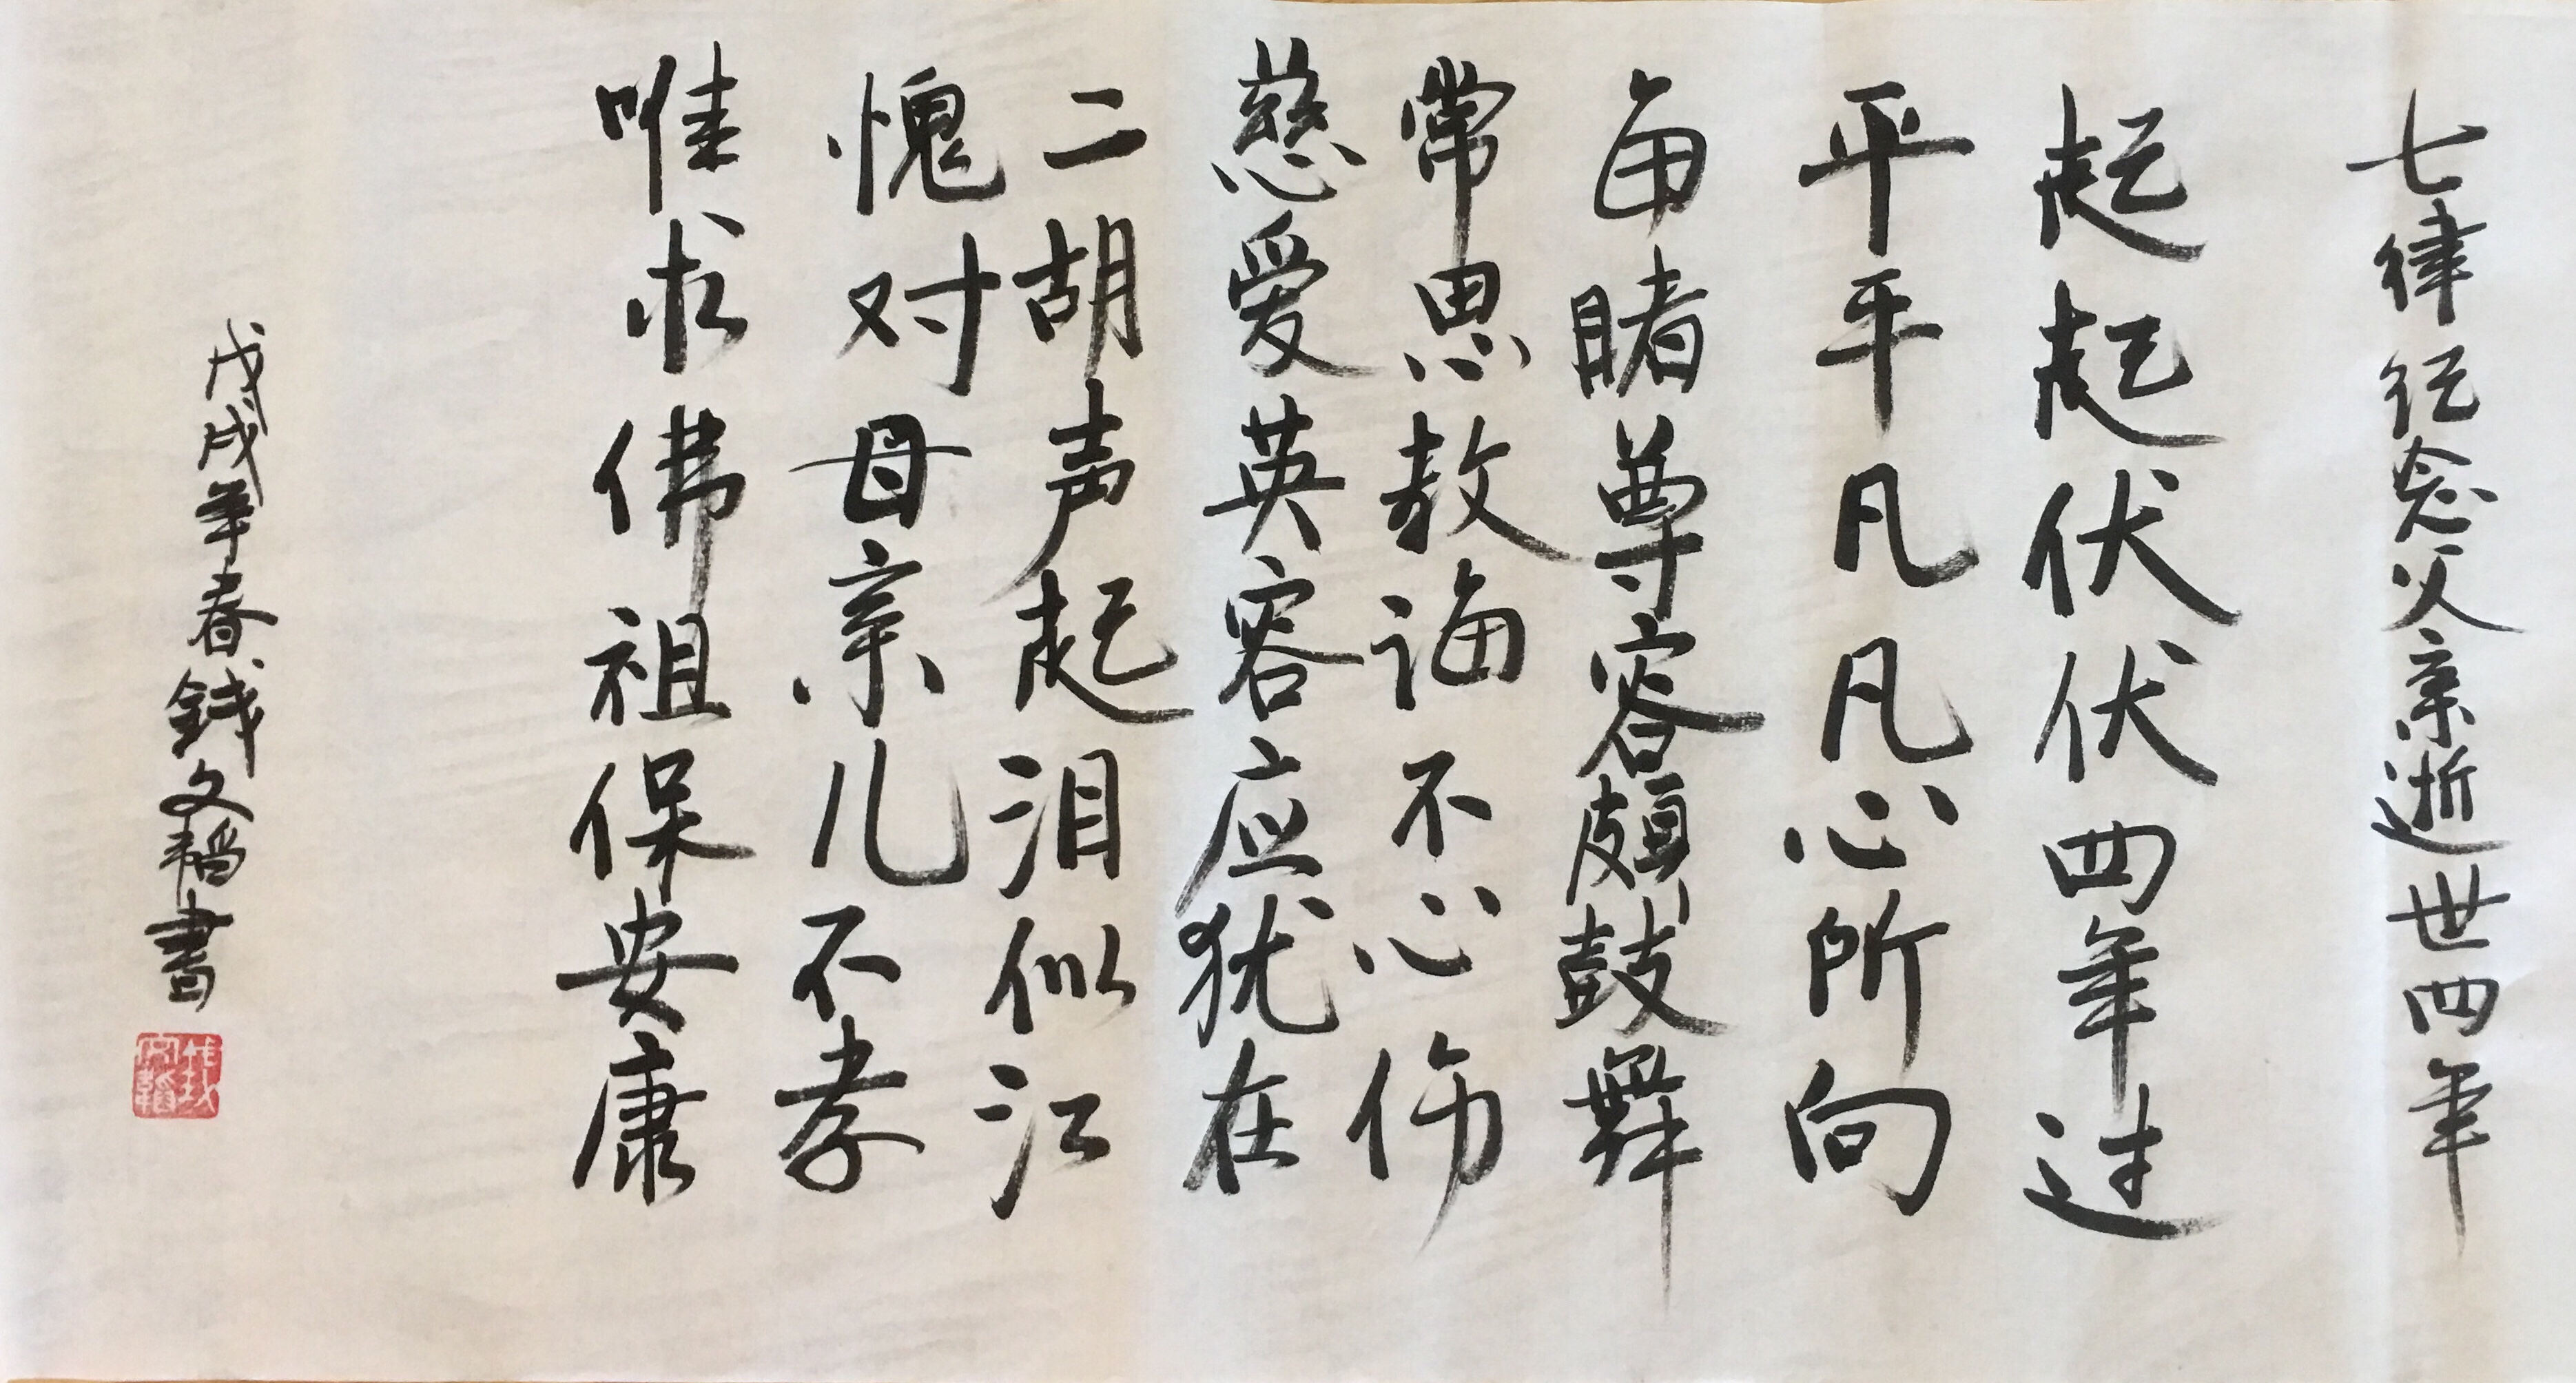 七律纪念父亲逝世四年
起起伏伏四年过
平平凡凡心所向
每睹尊容颇鼓舞
常思教诲不心伤
慈爱英容应犹在
二胡声起泪似江
愧对母亲儿不孝
唯求佛祖保安康
戊戌年春錢文韜書